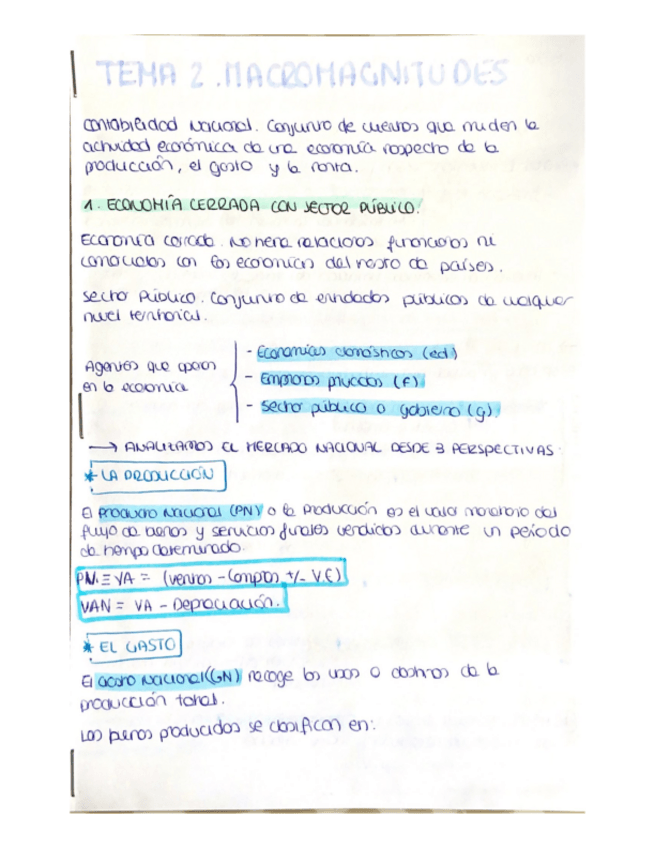 TEMA 2. MACROMAGNITUDES
Contabilidad Nacional. Conjunto de cuentas que miden la
actividad económica de una economía respecto de la
producción, el gasto y la renta.
1. ECONOMÍA CERRADA CON SECTOR PÚBLICO.
Economía cerrada. No tiene relaciones financieras ni
comerciales con las economías del resto de países.
Sector Público. Conjunto de entidades públicas de cualquier
nivel territorial.
Agentes que operan
en la economía
- Economías domésticas (ed)
- Empresas privadas (F)
- Sector público o gobierno (g).
→ ANALIZAMOS EL MERCADO NACIONAL DESDE 3 PERSPECTIVAS.
* LA PRODUCCIÓN
El Producto Nacional (PN) o la Producción es el valor monetario del
flujo de bienes y servicios finales vendidos durante un período
de tiempo determinado.
PN ≡ VA = (ventas - compras +/- V.E)
VAN = VA - Depreciación.
* EL GASTO
El Gasto Nacional (GN) recoge los usos o destinos de la
producción total.
Los bienes producidos se clasifican en: